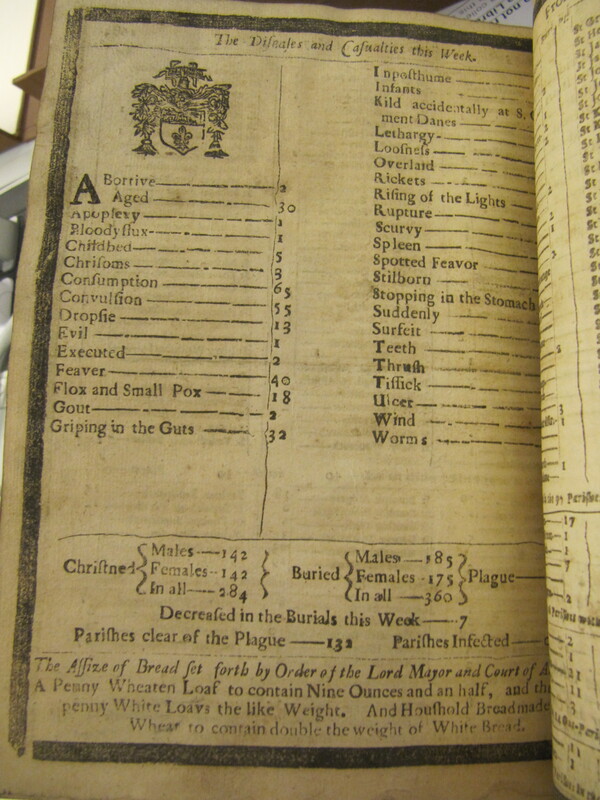 The Diſeaſes and Caſualties this Week.
ABortive 2
Aged 30
Apoplexy 1
Bloodyflux 1
Childbed 5
Chriſoms 3
Conſumption 65
Convulſion 55
Dropſie 13
Evil 1
Executed 2
Feaver 40
Flox and Small Pox 18
Gout 2
Griping in the Guts 32
Inpoſthume
Infants
Kild accidentally at S.
ment Danes
Lethargy
Looſneſs
Overlaid
Rickets
Riſing of the Lights
Rupture
Scurvy
Spleen
Spotted Feavor
Stilborn
Stopping in the Stomach
Suddenly
Surfeit
Teeth
Thruſh
Tiſſick
Ulcer
Wind
Worms
Chriſtned
Males—142
Females—142
In all—284
Buried
Males—185
Females—175
In all—360
Plague
Decreaſed in the Burials this Week—7
Pariſhes clear of the Plague—132 Pariſhes Infected
The Aſſize of Bread ſet forth by Order of the Lord Mayor and Court of
A Penny Wheaten Loaf to contain Nine Ounces and an half, and
penny White Loavs the like Weight. And Houſhold Bread made
Wheat to contain double the weight of White Bread.